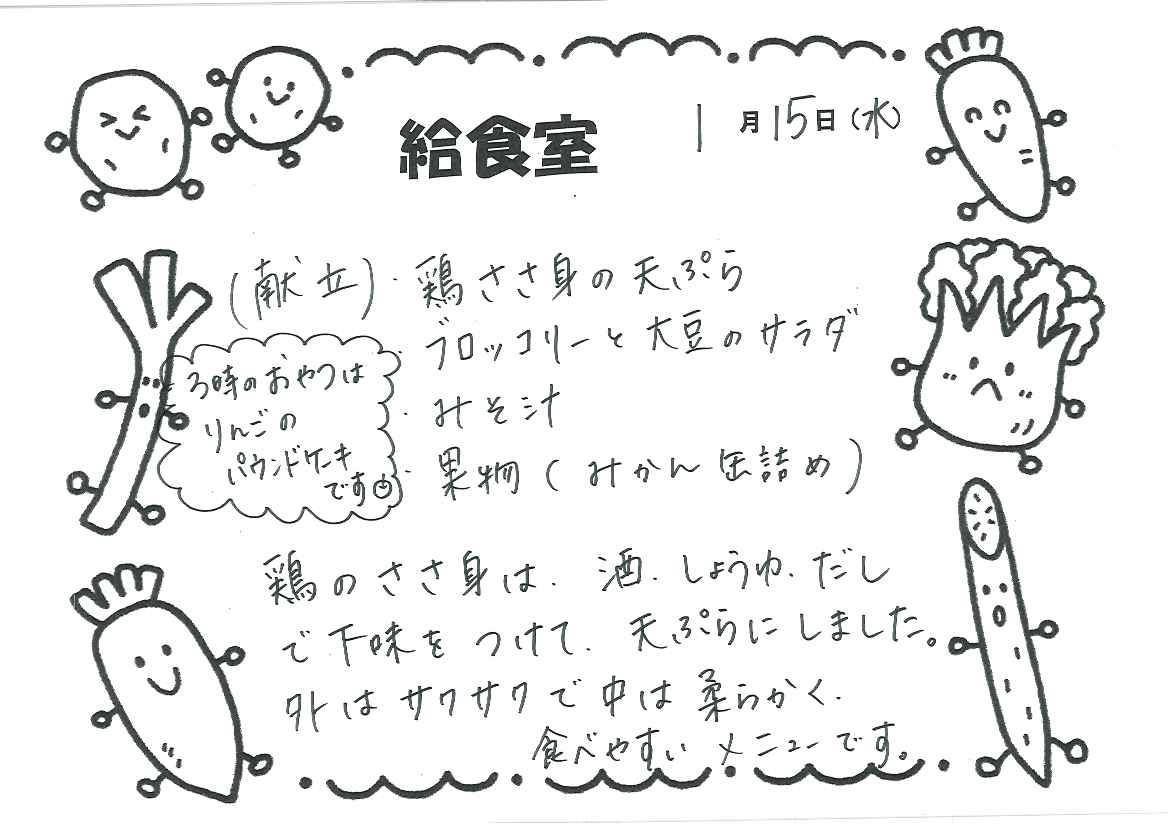 給食室
1月15日(水)
(献立)・鶏ささ身の天ぷら
・ブロッコリーと大豆のサラダ
・みそ汁
・果物(みかん缶詰め)
3時のおやつは
りんごの
パウンドケーキ
です
鶏のささ身は、酒、しょうゆ、だし
で下味をつけて、天ぷらにしました。
外はサクサクで中は柔らかく、
食べやすいメニューです。